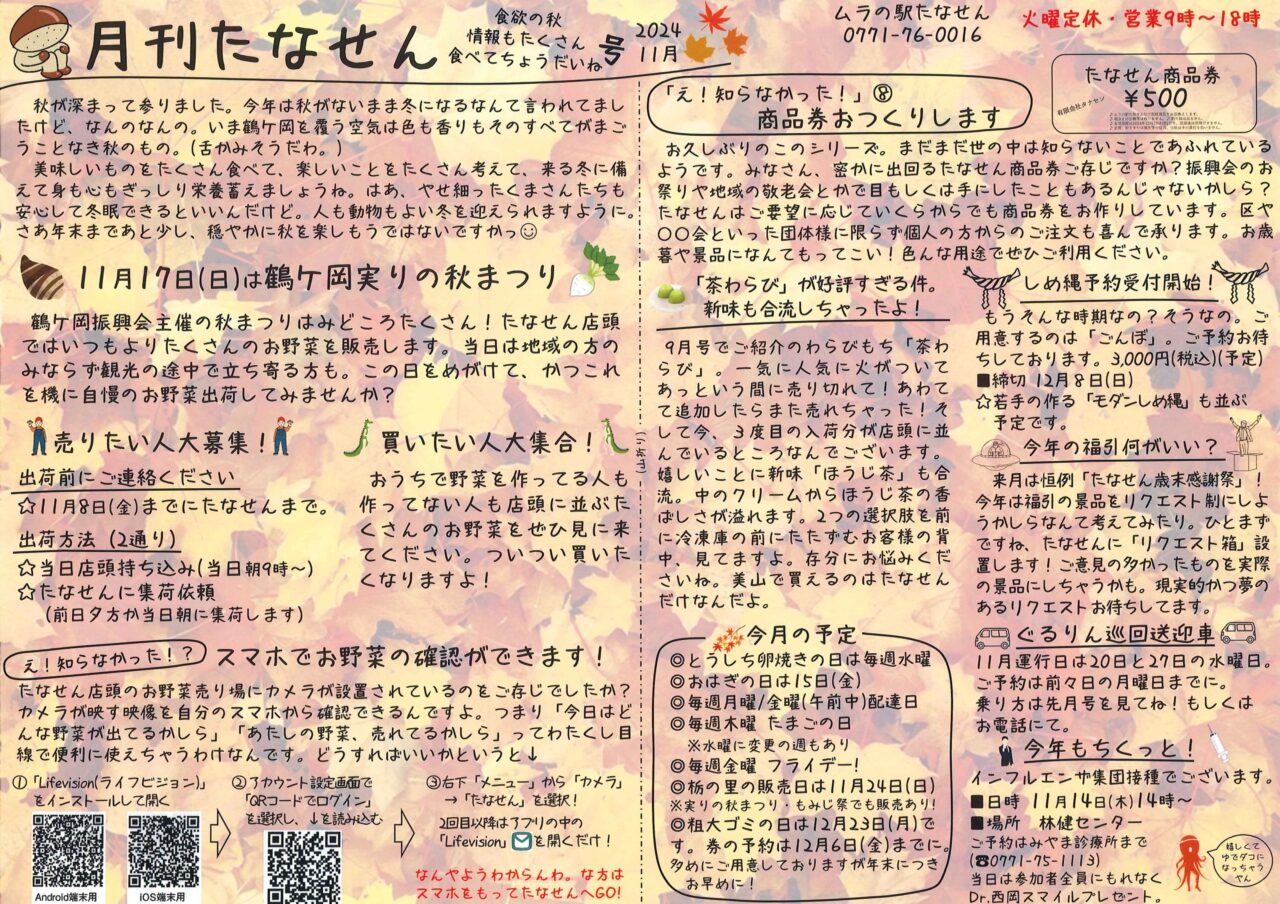 月刊たなせん
食欲の秋
情報もたくさん
食べてちょうだいね
号
2024
11月
ムラの駅たなせん
0771-76-0016
火曜定休・営業9時～18時
秋が深まって参りました。今年は秋がないまま冬になるなんて言われてまし
たけど、なんのなんの。いま鶴ケ岡を覆う空気は色も香りもそのすべてがまご
うことなき秋のもの。(舌かみそうだわ。)
美味しいものをたくさん食べて、楽しいことをたくさん考えて、来る冬に備
えて身も心もぎっしり栄養蓄えましょうね。はあ、やせ細ったくまさんたちも
安心して冬眠できるといいんだけど。人も動物もよい冬を迎えられますように。
さあ年末まであと少し、穏やかに秋を楽しもうではないですかっ☺
11月17日(日)は鶴ケ岡実りの秋まつり
鶴ケ岡振興会主催の秋まつりはみどころたくさん！たなせん店頭
ではいつもよりたくさんのお野菜を販売します。当日は地域の方の
みならず観光の途中で立ち寄る方も。この日をめがけて、かつこれ
を機に自慢のお野菜出荷してみませんか？
売りたい人大募集！
出荷前にご連絡ください
☆11月8日(金)までにたなせんまで。
出荷方法（2通り）
☆当日店頭持ち込み(当日朝9時～)
☆たなせんに集荷依頼
(前日夕方か当日朝に集荷します)
買いたい人大集合！
おうちで野菜を作ってる人も
作ってない人も店頭に並ぶた
くさんのお野菜をぜひ見に来
てください。ついつい買いた
くなりますよ！
え！知らなかった！？
スマホでお野菜の確認ができます！
たなせん店頭のお野菜売り場にカメラが設置されているのをご存じでしたか？
カメラが映す映像を自分のスマホから確認できるんですよ。つまり「今日はど
んな野菜が出てるかしら」「あたしの野菜、売れてるかしら」ってわたくし目
線で便利に使えちゃうわけなんです。どうすればいいかというと↓
①「Lifevision(ライフビジョン)」
をインストールして開く
Android端末用
iOS端末用
②アカウント設定画面で
「QRコードでログイン」
を選択し、↓を読み込む
③右下「メニュー」から「カメラ」
→「たなせん」を選択！
2回目以降はアプリの中の
「Lifevision」を開くだけ！
なんやようわからんわ。な方は
スマホをもってたなせんへGO!
「え！知らなかった！」⑧
商品券おつくりします
たなせん商品券
¥500
有限会社タナセン
お久しぶりのこのシリーズ。まだまだ世の中は知らないことであふれている
ようです。みなさん、密かに出回るたなせん商品券ご存じですか？振興会のお
祭りや地域の敬老会とかで目もしくは手にしたこともあるんじゃないかしら？
たなせんはご要望に応じていくらからでも商品券をお作りしています。区や
〇〇会といった団体様に限らず個人の方からのご注文も喜んで承ります。お歳
暮や景品になんてもってこい！色んな用途でぜひご利用ください。
「茶わらび」が好評すぎる件。
新味も合流しちゃったよ！
9月号でご紹介のわらびもち「茶わ
らび」。一気に人気に火がついて
あっという間に売り切れて！あわて
て追加したらまた売れちゃった！そ
して今、3度目の入荷分が店頭に並
んでいるところなんでございます。
嬉しいことに新味「ほうじ茶」も合
流。中のクリームからほうじ茶の香
ばしさが溢れます。2つの選択肢を前
に冷凍庫の前にたたずむお客様の背
中、見てますよ。存分にお悩みくだ
さいね。美山で買えるのはたなせん
だけなんだよ。
今月の予定
◎とうしち卵焼きの日は毎週水曜
◎おはぎの日は15日(金)
◎毎週月曜/金曜(午前中)配達日
◎毎週木曜 たまごの日
※水曜に変更の週もあり
◎毎週金曜 フライデー！
◎栃の里の販売日は11月24日(日)
※実りの秋まつり・もみじ祭でも販売あり!
◎粗大ゴミの日は12月23日(月)で
す。券の予約は12月6日(金)までに。
多めにご用意しておりますが年末につき
お早めに！
しめ縄予約受付開始！
もうそんな時期なの？そうなの。ご
用意するのは「ごんぼ」。ご予約お待
ちしております。3,000円(税込)(予定)
■締切 12月8日(日)
☆若手の作る「モダンしめ縄」も並ぶ
予定です。
今年の福引何がいい？
来月は恒例「たなせん歳末感謝祭」！
今年は福引の景品をリクエスト制にしよ
うかしらなんて考えてみたり。ひとまず
ですね、たなせんに「リクエスト箱」設
置します！ご意見の多かったものを実際
の景品にしちゃうかも。現実的かつ夢の
あるリクエストお待ちしてます。
ぐるりん巡回送迎車
11月運行日は20日と27日の水曜日。
ご予約は前々日の月曜日までに。
乗り方は先月号を見てね！もしくは
お電話にて。
今年もちくっと！
インフルエンザ集団接種でございます。
■日時 11月14日(木)14時～
■場所 林健センター
ご予約はみやま診療所まで
(☎0771-75-1113)
当日は参加者全員にもれなく
Dr.西岡スマイルプレゼント。
嬉しくて
ゆでダコに
なっちゃう
やん